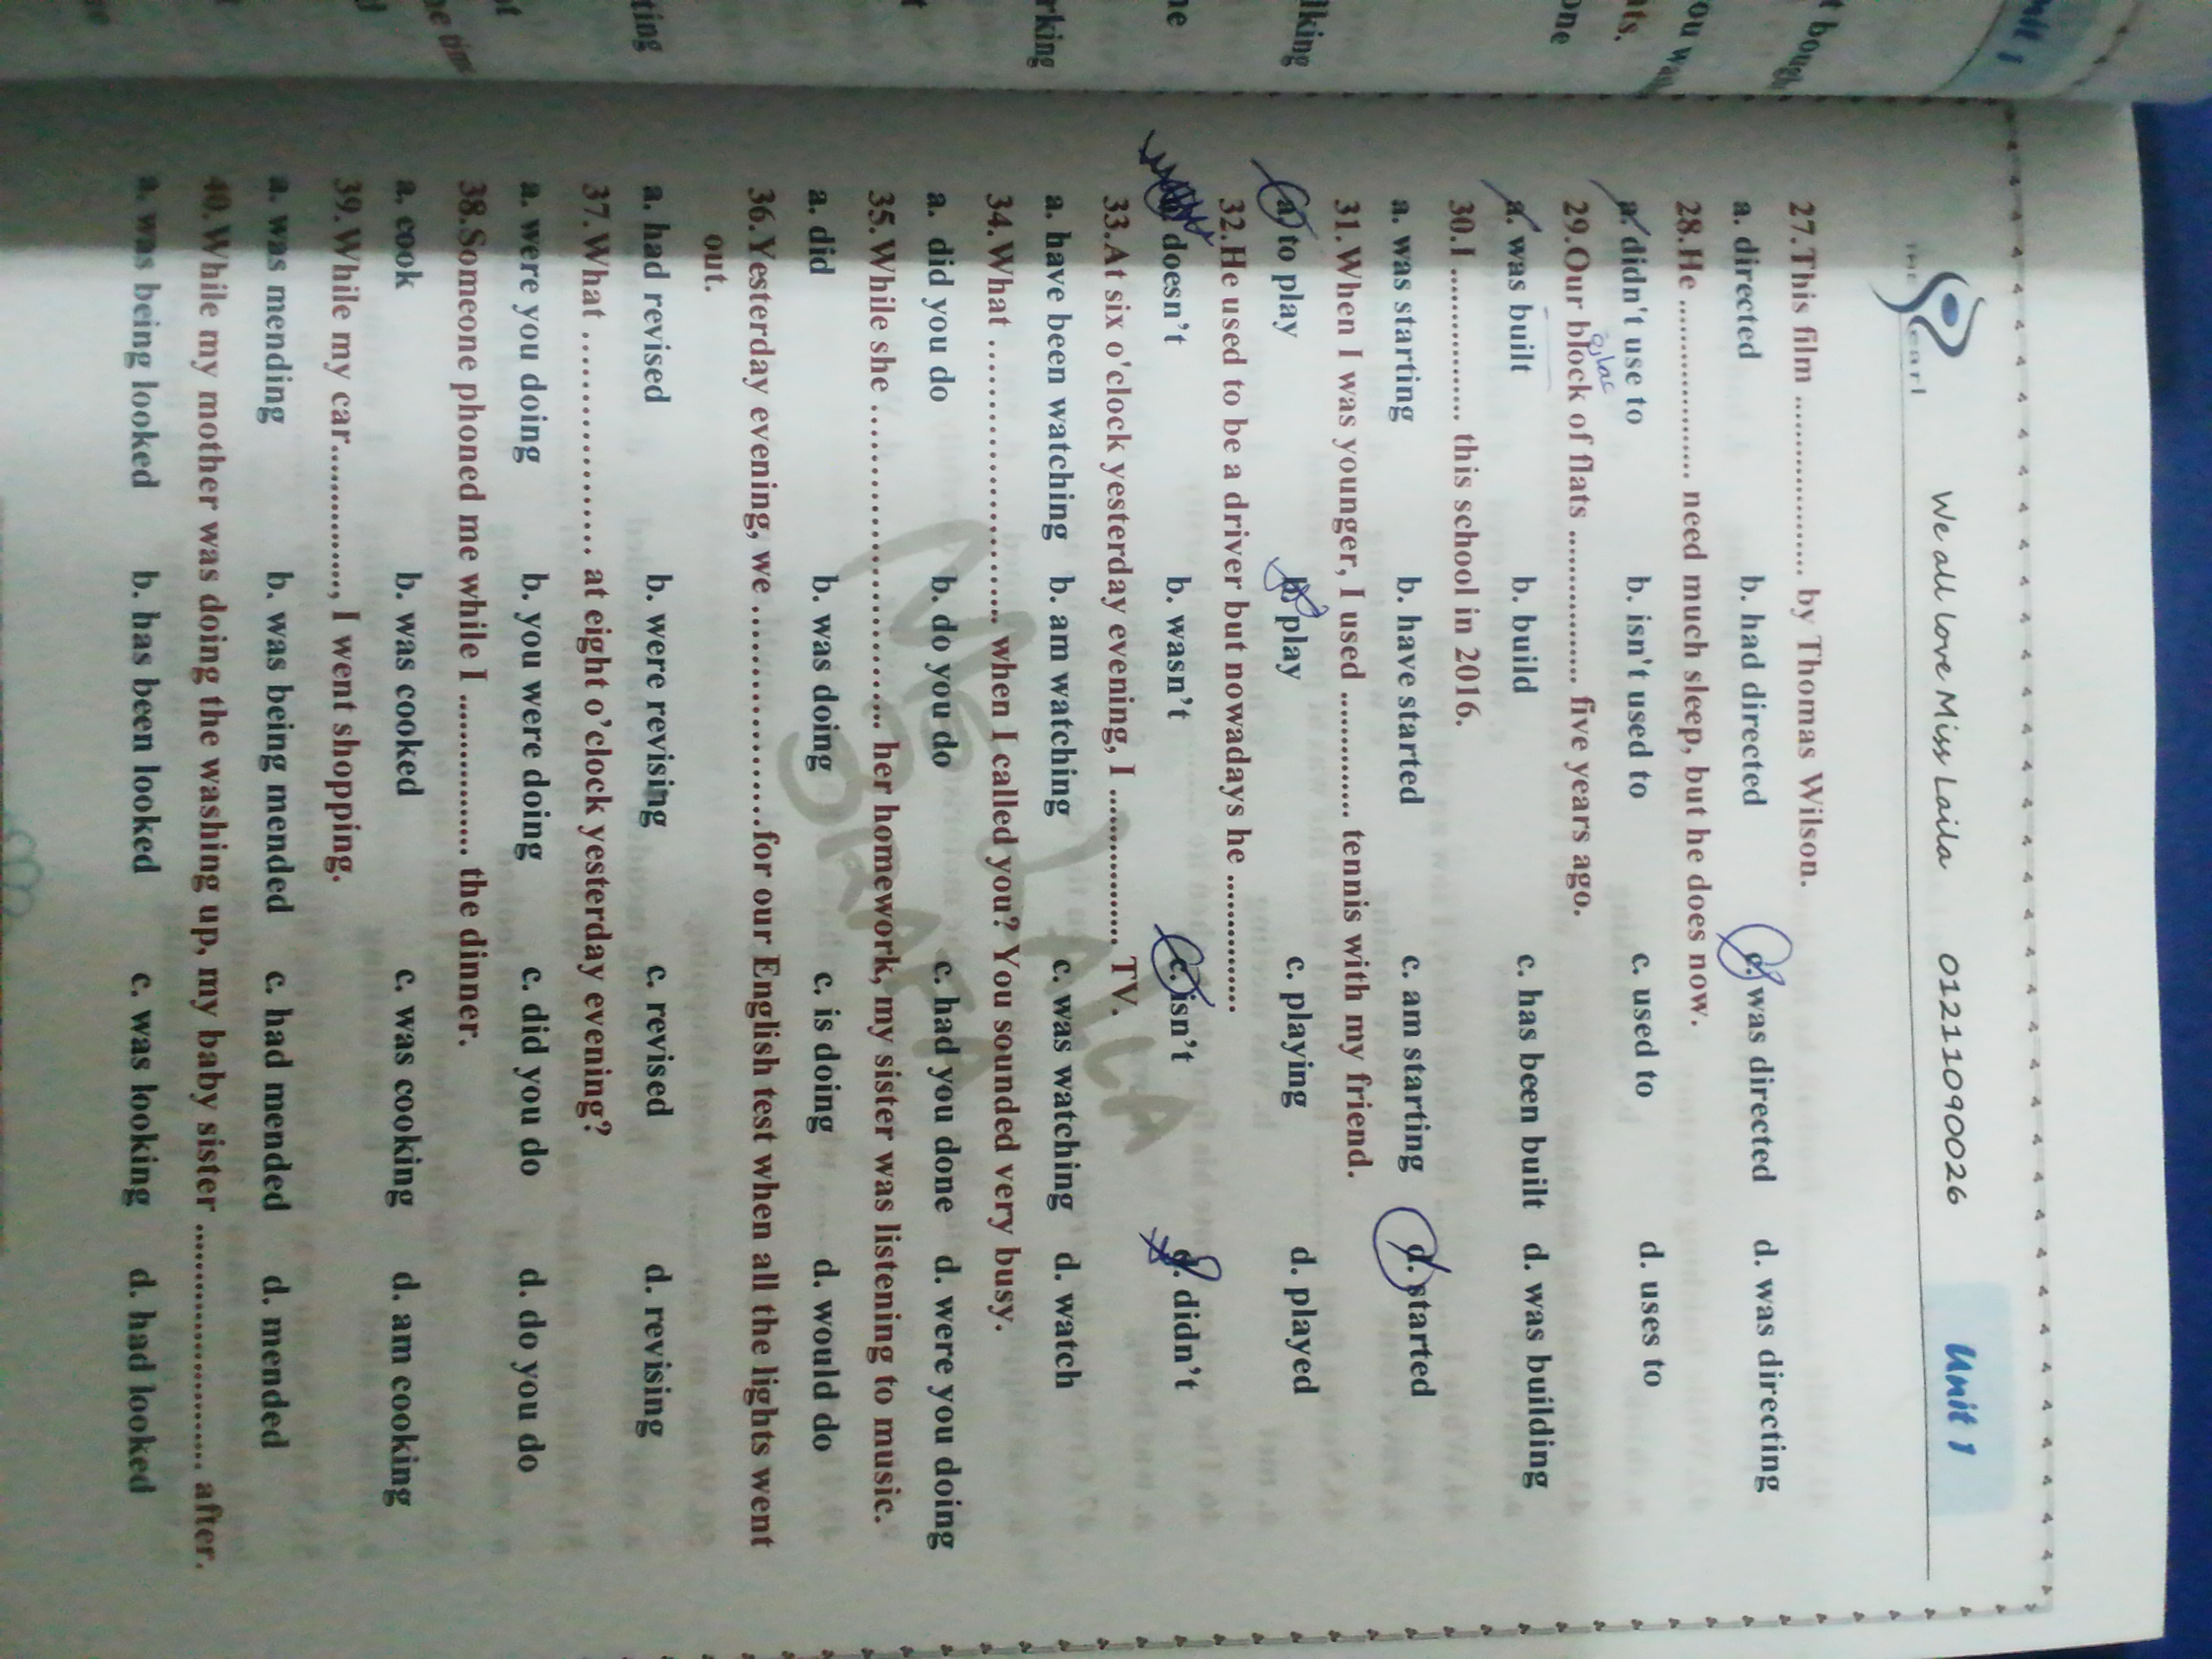 We all love Miss Laila 01211090026 Unit 1
27.This film .................. by Thomas Wilson.
a. directed b. had directed c. was directed d. was directing
28.He ................. need much sleep, but he does now.
a. didn't use to b. isn't used to c. used to d. uses to
29.Our block of flats ............... five years ago.
a. was built b. build c. has been built d. was building
30.I ............... this school in 2016.
a. was starting b. have started c. am starting d. started
31.When I was younger, I used ............ tennis with my friend.
a. to play b. play c. playing d. played
32.He used to be a driver but nowadays he .............
doesn't b. wasn't c. isn't d. didn't
33.At six o'clock yesterday evening, I ............... TV.
a. have been watching b. am watching c. was watching d. watch
34.What ........................... when I called you? You sounded very busy.
a. did you do b. do you do c. had you done d. were you doing
35.While she ............................... her homework, my sister was listening to music.
a. did b. was doing c. is doing d. would do
36.Yesterday evening, we .....................for our English test when all the lights went
out.
a. had revised b. were revising c. revised d. revising
37.What ..................... at eight o'clock yesterday evening?
a. were you doing b. you were doing c. did you do d. do you do
38.Someone phoned me while I ............... the dinner.
a. cook b. was cooked c. was cooking d. am cooking
39.While my car..............., I went shopping.
a. was mending b. was being mended c. had mended d. mended
40.While my mother was doing the washing up, my baby sister ........................ after.
a. was being looked b. has been looked c. was looking d. had looked